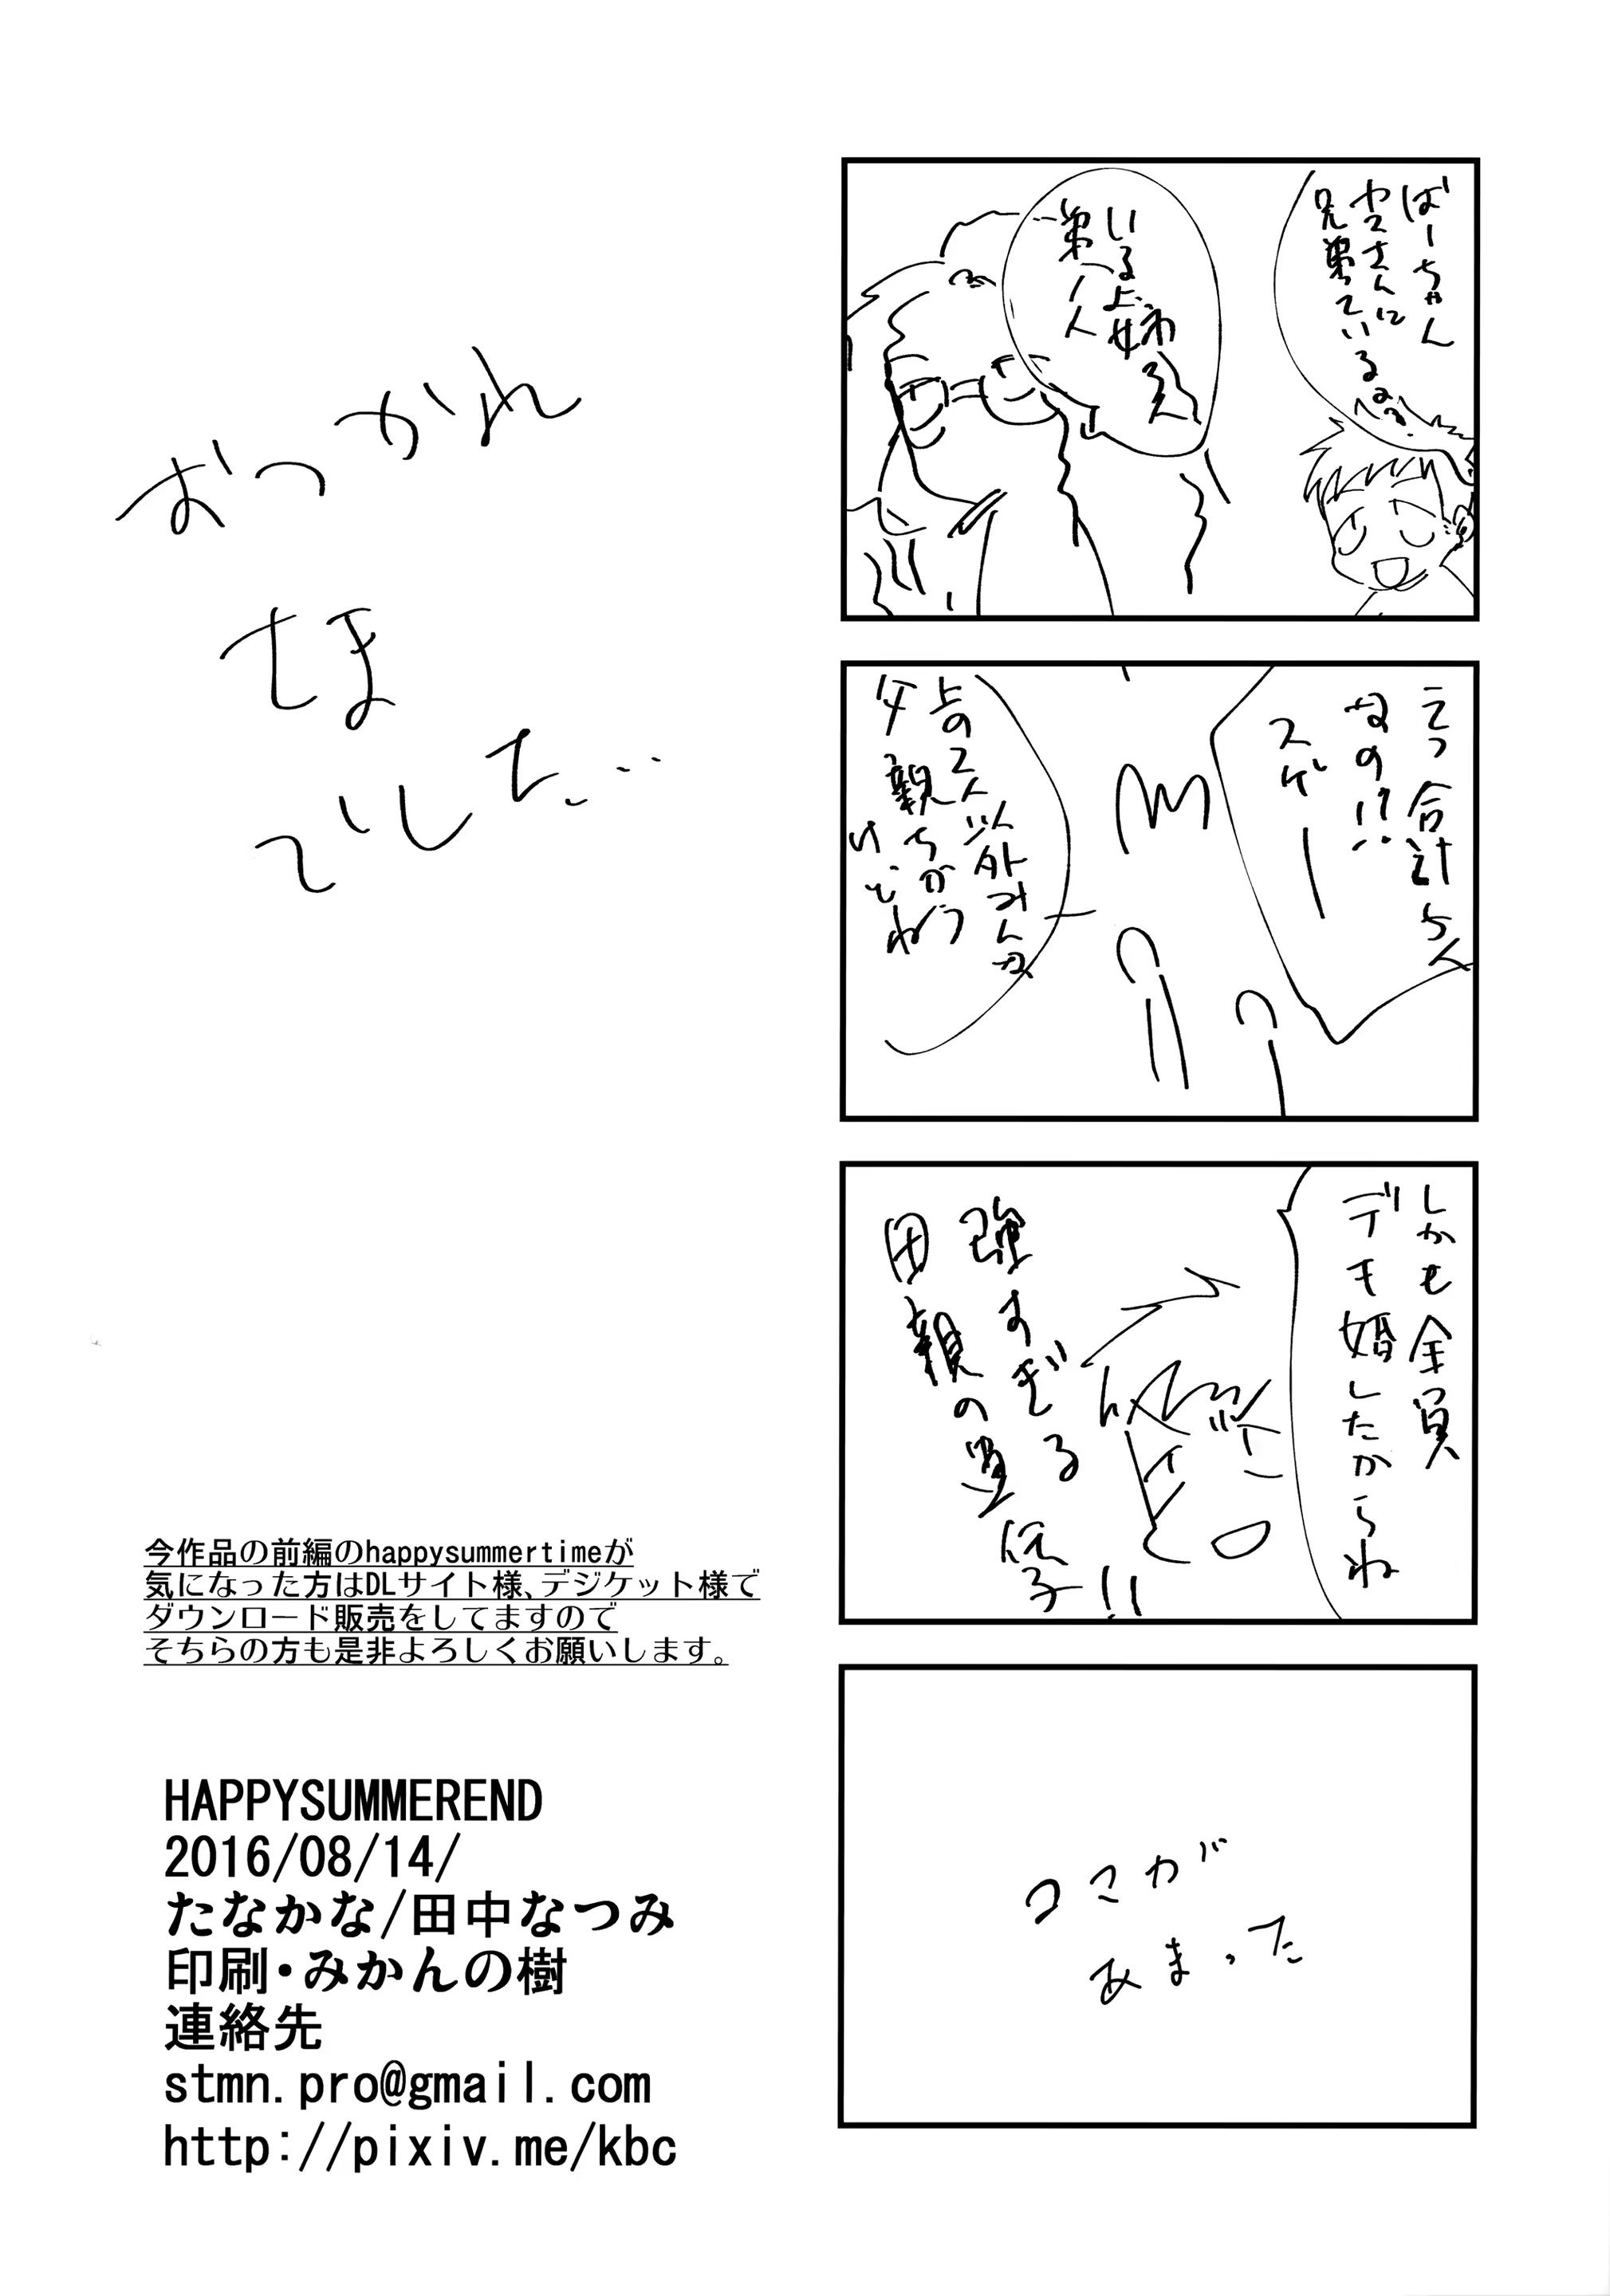 ばーちゃん
ヤスさんに
兄弟っているの?
いるよ姉3人
弟1人
えっ合計5人
なの!?
スゲー
上の2人以外みんな
父親ちがう
けどね
しかも全員
デキ婚したからね
強すぎる
母親の遺伝子!!
コマが
あまった
おつかれ
さま
でした…
今作品の前編のhappysummertimeが
気になった方はDLサイト様、デジケット様で
ダウンロード販売をしてますので
そちらの方も是非よろしくお願いします。
HAPPYSUMMEREND
2016/08/14/
たなかな/田中なつみ
印刷・みかんの樹
連絡先
stmn.pro@gmail.com
http://pixiv.me/kbc